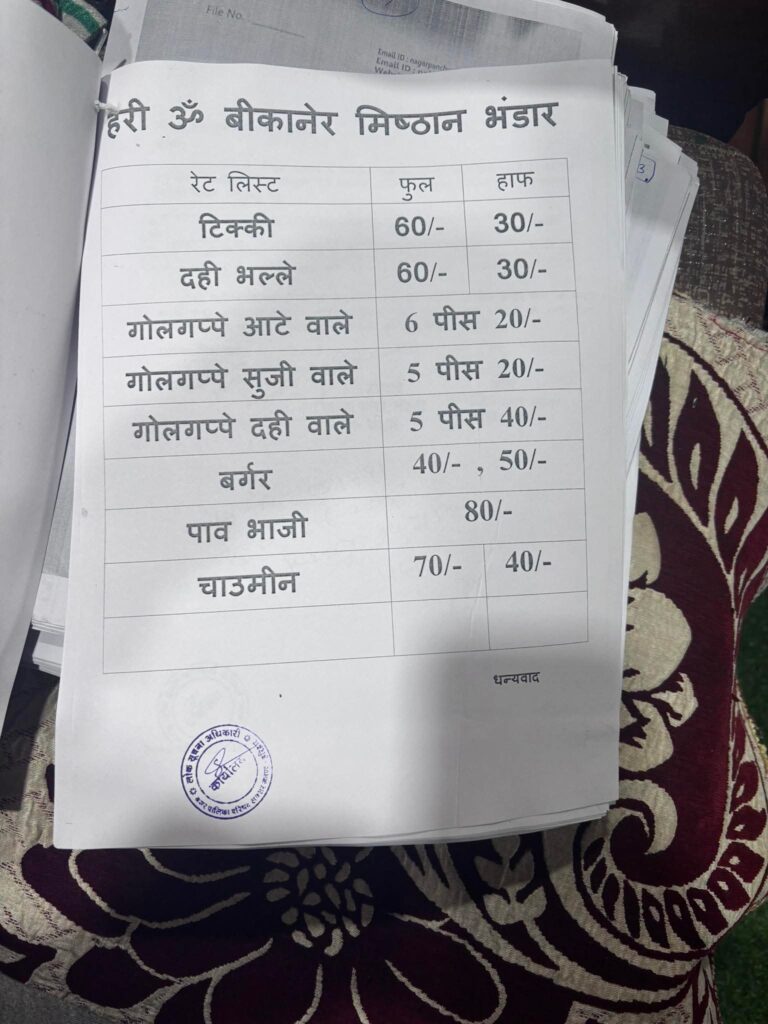 File No.
Email ID : nagarpanch
Email ID :
हरी ॐ बीकानेर मिष्ठान भंडार
रेट लिस्ट फुल हाफ
टिक्की 60/- 30/-
दही भल्ले 60/- 30/-
गोलगप्पे आटे वाले 6 पीस 20/-
गोलगप्पे सुजी वाले 5 पीस 20/-
गोलगप्पे दही वाले 5 पीस 40/-
बर्गर 40/- , 50/-
पाव भाजी 80/-
चाउमीन 70/- 40/-
धन्यवाद
लोक सूचना अधिकारी
कार्यालय
नगर पालिका परिषद
3.